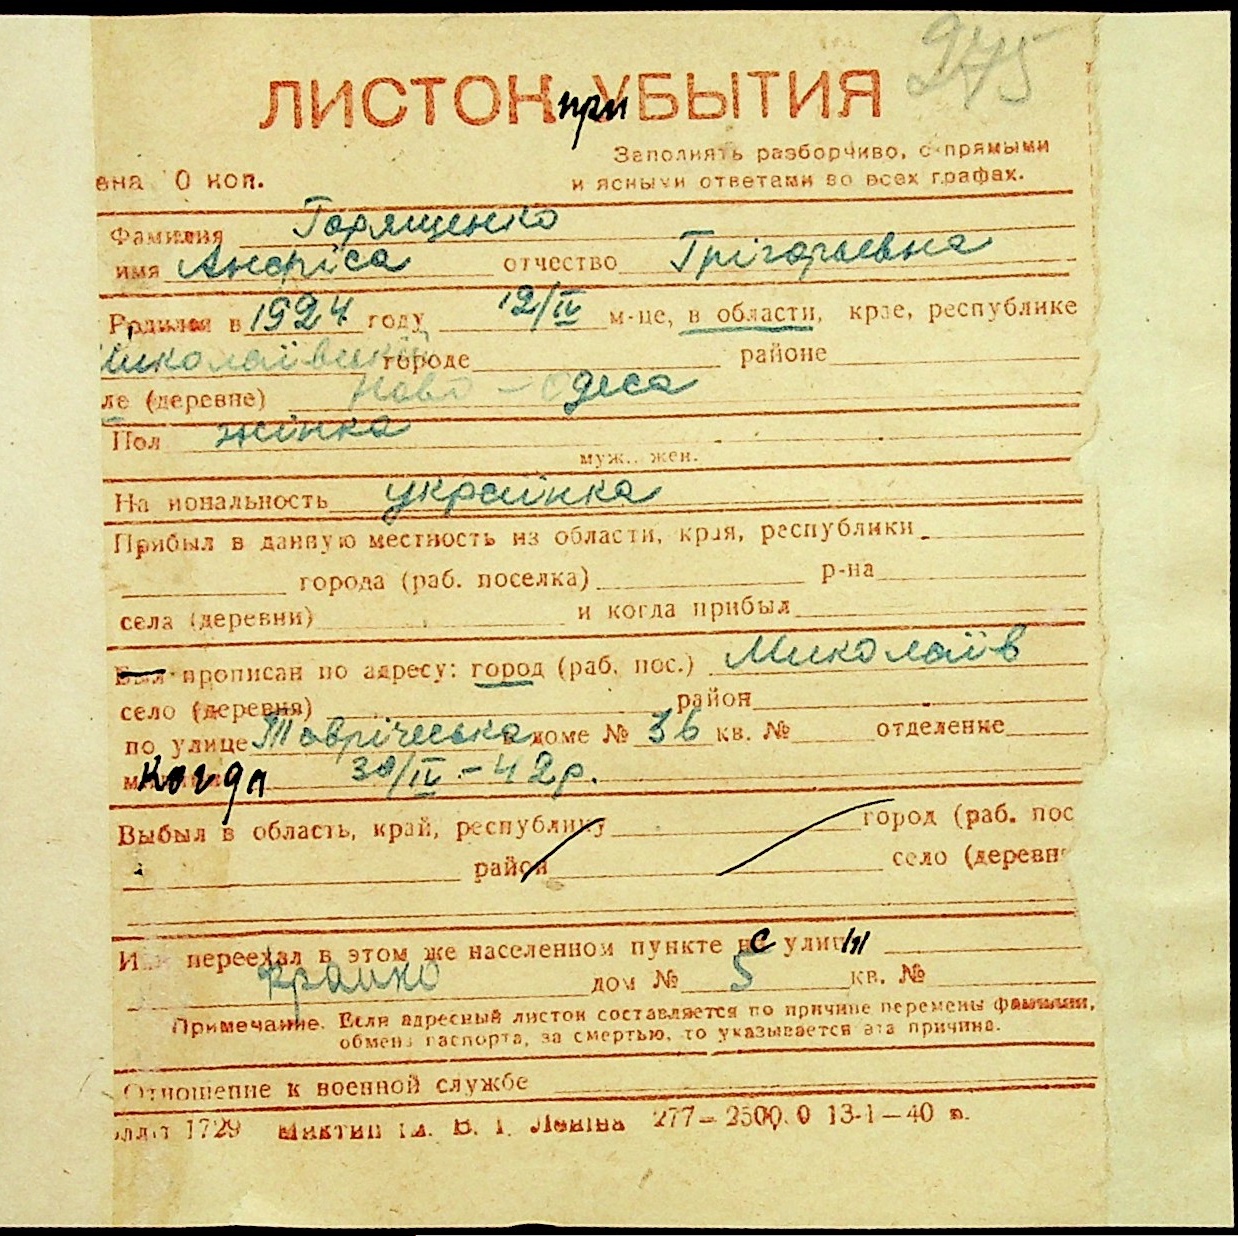 975
ЛИСТОК при УБЫТИЯ
Заполнять разборчиво, с прямыми
ена 0 коп. и ясными ответами во всех графах.
Фамилия Горященко
имя Анфіса отчество Грігорьевна
Родился в 1924 году 12/IV м-це, в области, крае, республике
Миколаївській городе районе
ле (деревне) Ново-Одеса
Пол жінка
муж., жен.
Национальность українка
Прибыл в данную местность из области, края, республики
города (раб. поселка) р-на
села (деревни) и когда прибыл
Был прописан по адресу: город (раб. пос.) Миколаїв
село (деревня) район
по улице Тавріческа в доме № 36 кв. № отделение
когда 30/IV-42р.
Выбыл в область, край, республику город (раб. пос
район село (деревн
Или переехал в этом же населенном пункте с улицы
Франко дом № 5 кв. №
Примечание. Если адресный листок составляется по причине перемены фамилии,
обмена паспорта, за смертью, то указывается эта причина.
Отношение к военной службе
1729 В. І. Леніна 277–2500.0 13-1–40 р.